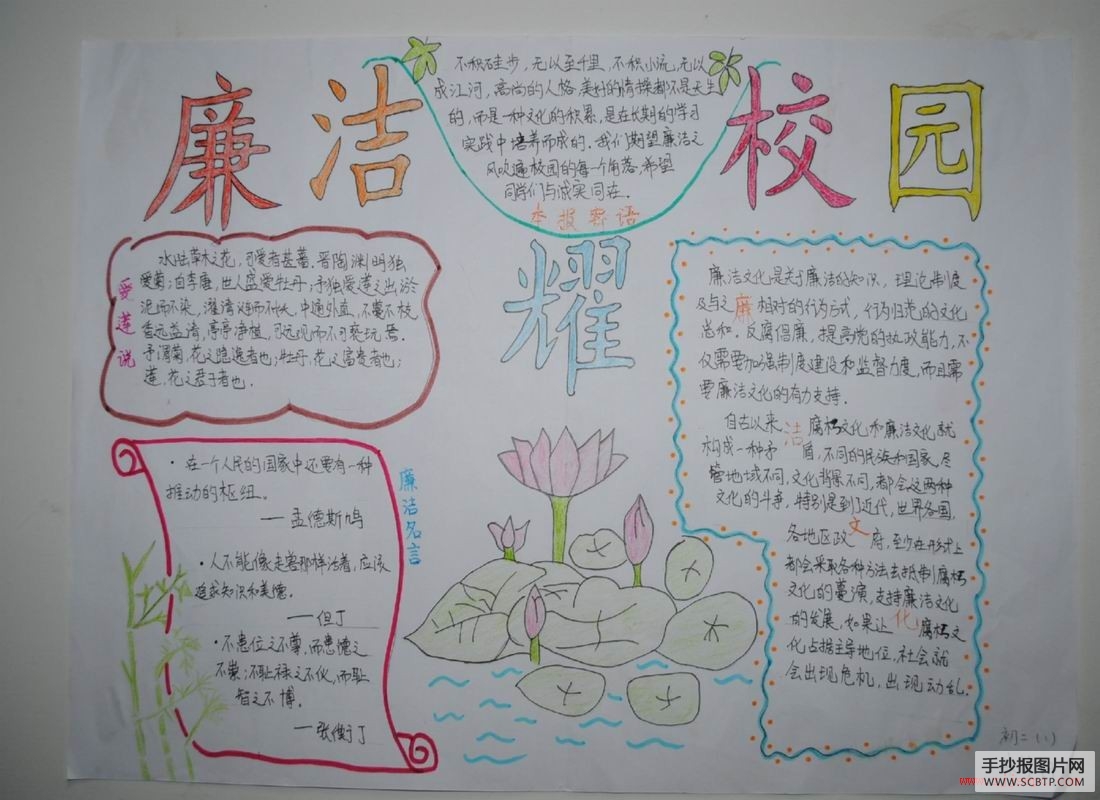 廉洁校园
耀
不积硅步，无以至千里，不积小流，无以
成江河，高尚的人格，美好的情操都不是天生
的，而是一种文化的积累，是在长期的学习
实践中培养而成的。我们期望廉洁之
风吹遍校园的每一个角落，希望
同学们与诚实同在。
本报寄语
爱莲说
水陆草木之花，可爱者甚蕃。晋陶渊明独
爱菊；自李唐，世人盛爱牡丹；予独爱莲之出淤
泥而不染，濯清涟而不妖，中通外直，不蔓不枝，
香远益清，亭亭净植，可远观而不可亵玩焉。
予谓菊，花之隐逸者也；牡丹，花之富贵者也；
莲，花之君子者也。
廉洁名言
·在一个人民的国家中还要有一种
推动的枢纽。
——孟德斯鸠
·人不能像走兽那样活着，应该
追求知识和美德。
——但丁
·不患位之不尊，而患德之
不崇；不耻禄之不伙，而耻
智之不博。
——张衡
廉洁文化
廉洁文化是关于廉洁的知识，理论制度
及与之相对的行为方式，行为归范的文化
总和。反腐倡廉，提高党的执政能力，不
仅需要加强制度建设和监督力度，而且需
要廉洁文化的有力支持。
自古以来腐朽文化和廉洁文化就
构成一种矛盾，不同的民族和国家，尽
管地域不同，文化背景不同，都会这两种
文化的斗争，特别是到了近代，世界各国，
各地区政府，至少在形式上
都会采取各种方法去抵制腐朽
文化的蔓演，支持廉洁文化
的发展，如果让腐朽文
化占据主导地位，社会就
会出现危机，出现动乱。
初二（1）
手抄报图片网
WWW.SCBTP.COM